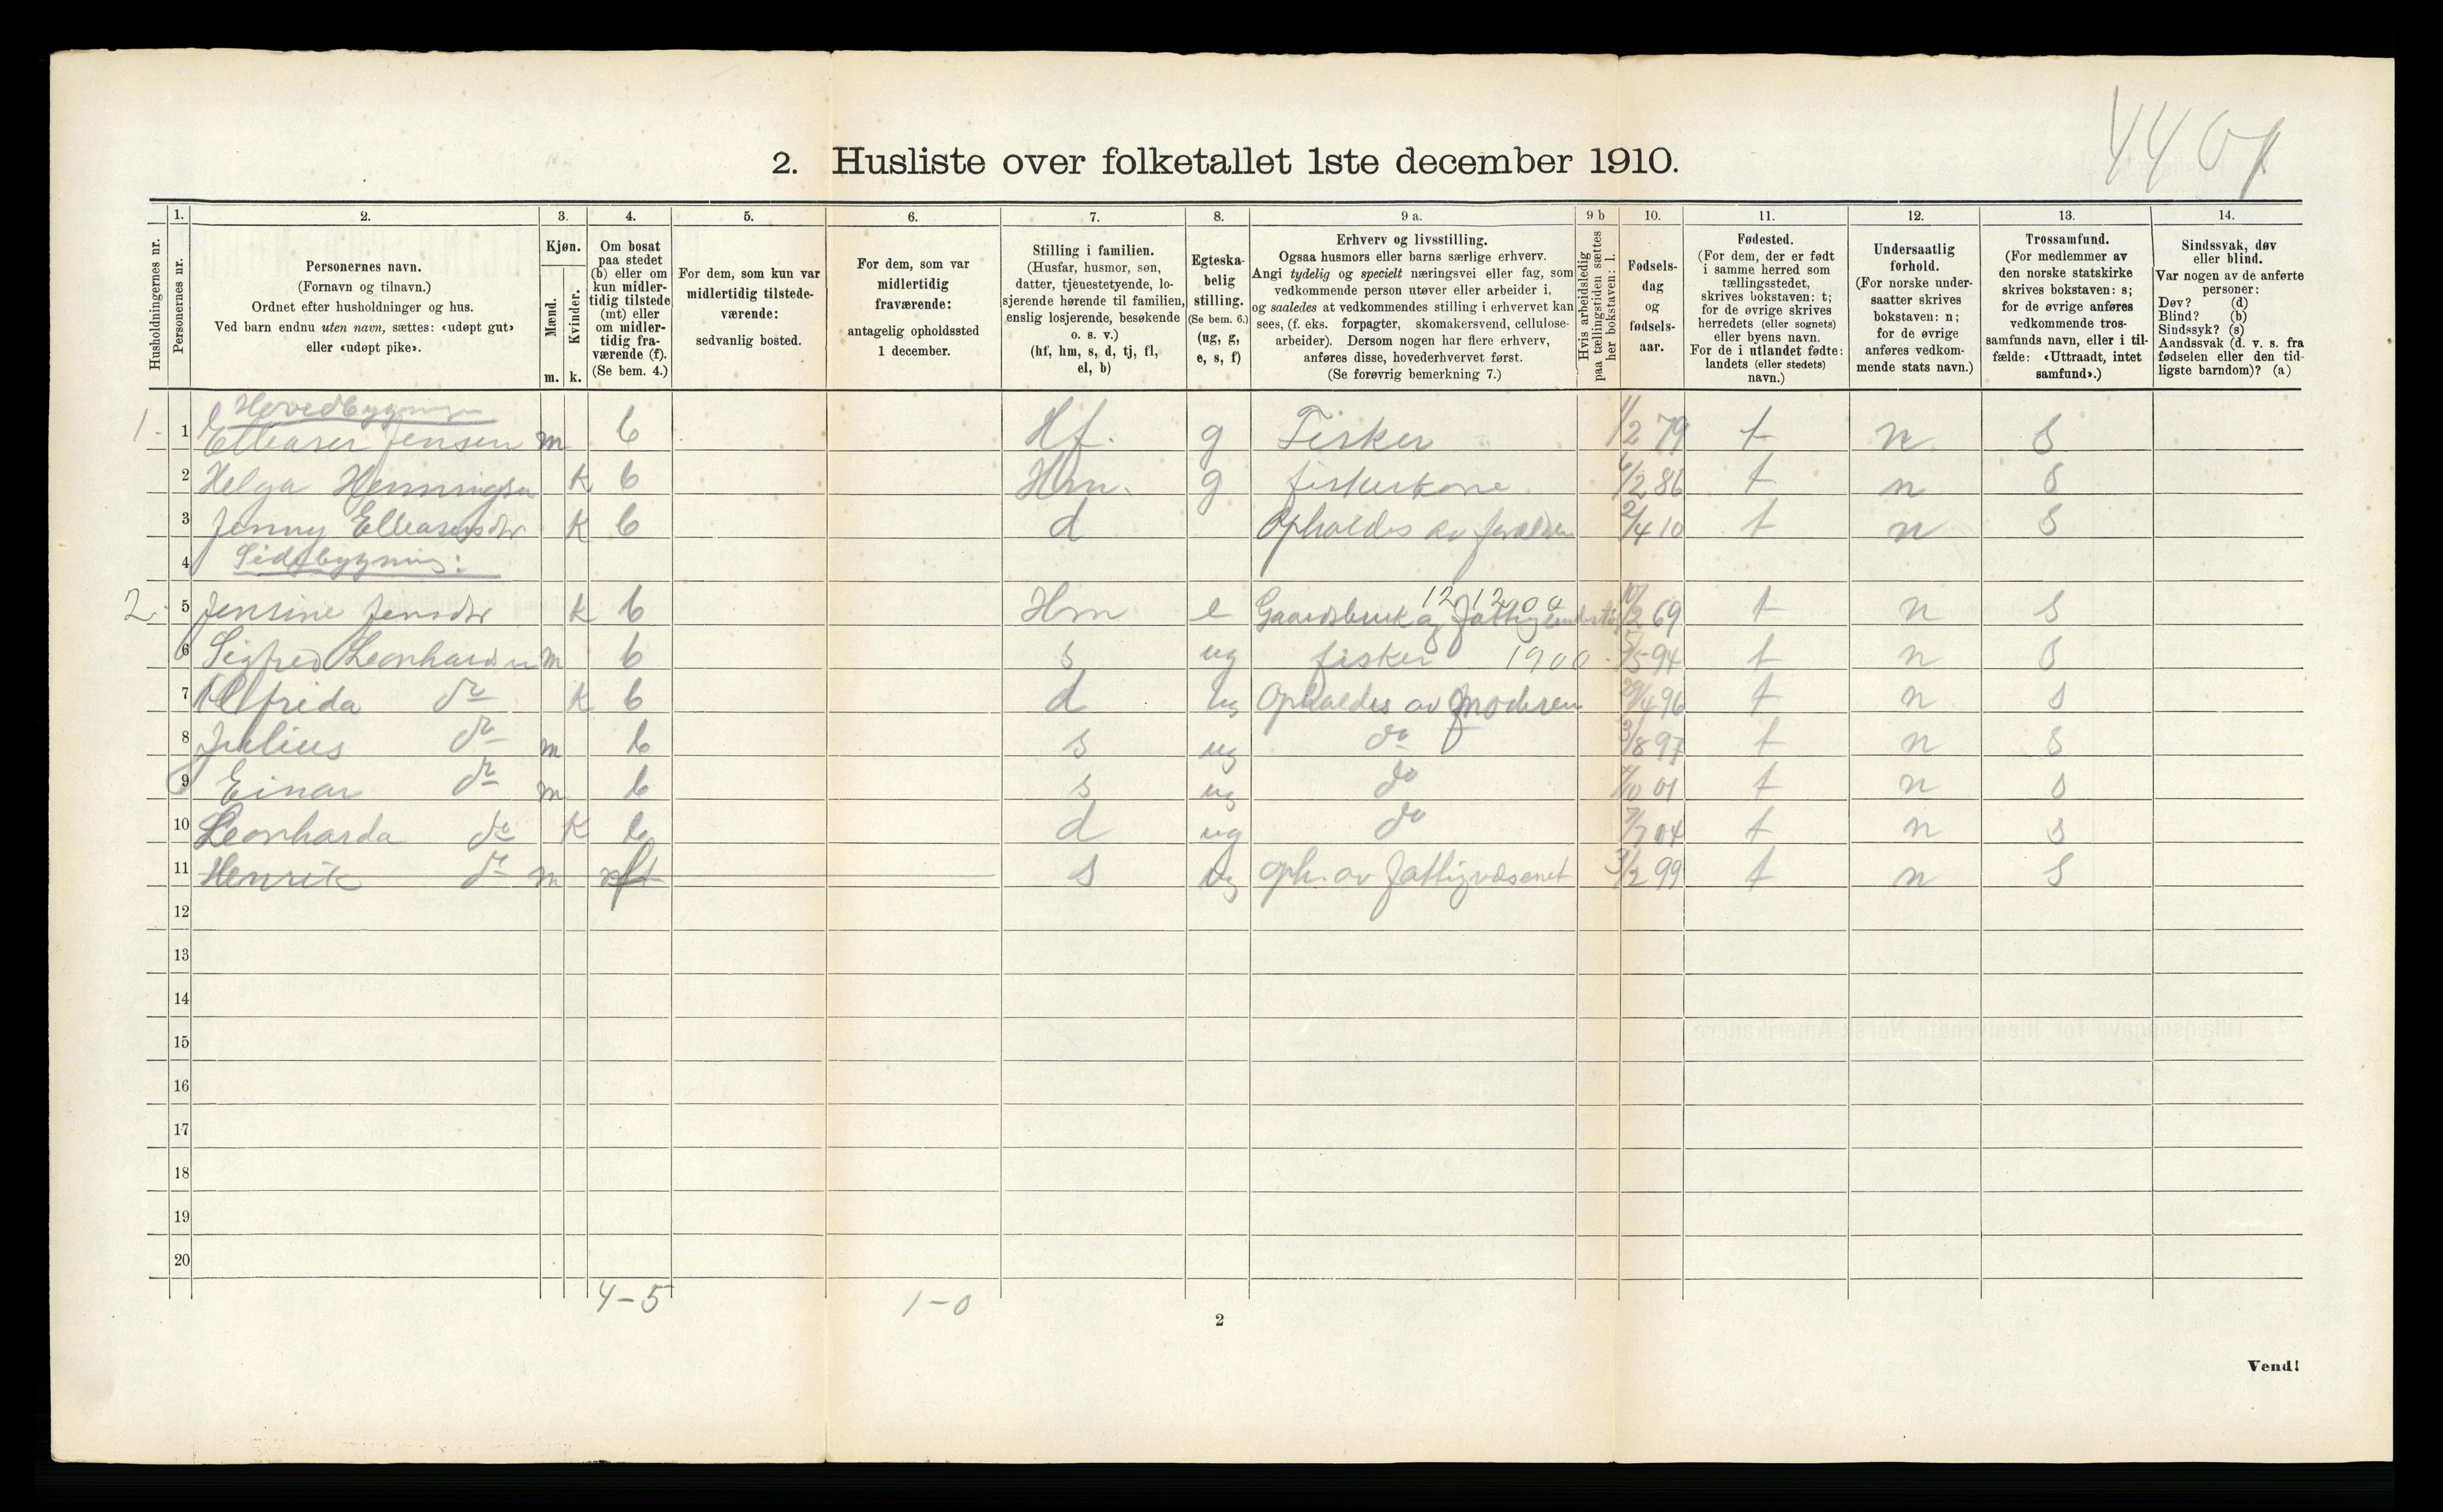 2. Husliste over folketallet 1ste december 1910.
Husholdningernes nr.
1.
Personernes nr.
2.
Personernes navn.
(Fornavn og tilnavn.)
Ordnet efter husholdninger og hus.
Ved barn endnu uten navn, sættes: «udøpt gut»
eller «udøpt pike».
3.
Kjøn.
Mænd.
Kvinder.
m. k.
4.
Om bosat
paa stedet
(b) eller om
kun midler-
tidig tilstede
(mt) eller
om midler-
tidig fra-
værende (f).
(Se bem. 4.)
5.
For dem, som kun var
midlertidig tilstede-
værende:
sedvanlig bosted.
6.
For dem, som var
midlertidig
fraværende:
antagelig opholdssted
1 december.
7.
Stilling i familien.
(Husfar, husmor, søn,
datter, tjenestetyende, lo-
sjerende hørende til familien,
enslig losjerende, besøkende
o. s. v.)
(hf, hm, s, d, tj, fl,
el, b)
8.
Egteska-
belig
stilling.
(Se bem. 6.)
(ug, g,
e, s, f)
9 a.
Erhverv og livsstilling.
Ogsaa husmors eller barns særlige erhverv.
Angi tydelig og specielt næringsvei eller fag, som
vedkommende person utøver eller arbeider i,
og saaledes at vedkommendes stilling i erhvervet kan
sees, (f. eks. forpagter, skomakersvend, cellulose-
arbeider). Dersom nogen har flere erhverv,
anføres disse, hovederhvervet først.
(Se forøvrig bemerkning 7.)
9 b
Hvis arbeidsledig
paa tællingstiden sættes
her bokstaven: l.
10.
Fødsels-
dag
og
fødsels-
aar.
11.
Fødested.
(For dem, der er født
i samme herred som
tællingsstedet,
skrives bokstaven: t;
for de øvrige skrives
herredets (eller sognets)
eller byens navn.
For de i utlandet fødte:
landets (eller stedets)
navn.)
12.
Undersaatlig
forhold.
(For norske under-
saatter skrives
bokstaven: n;
for de øvrige
anføres vedkom-
mende stats navn.)
13.
Trossamfund.
(For medlemmer av
den norske statskirke
skrives bokstaven: s;
for de øvrige anføres
vedkommende tros-
samfunds navn, eller i til-
fælde: «Uttraadt, intet
samfund».)
14.
Sindssvak, døv
eller blind.
Var nogen av de anførte
personer:
Døv? (d)
Blind? (b)
Sindssyk? (s)
Aandssvak (d. v. s. fra
fødselen eller den tid-
ligste barndom)? (a)
Hovedbygning
1 1 Elleaser Jensen m b Hf. g Fisker 1/2 79 t n s
2 Helga Henningsn k b Hm. g fiskerkone 6/2 86 t n s
3 Jenny Elleasersdtr k b d Opholdes av forældren 2/4 10 t n s
4 Sidebygning:
2 5 Jensine Jensdtr k b Hm e Gaardsbruk og fattigunderst. 12 1200 10/2 69 t n s
6 Sigfred Leonhardsn m b s ug fisker 1900 5/5 94 t n s
7 Alfrida do k b d ug Opholdes av moderen 29/4 96 t n s
8 Julius do m b s ug do 3/8 97 t n s
9 Einar do m b s ug do 4/10 01 t n s
10 Leonharda do k b d ug do 7/7 04 t n s
11 Henrik do m s ug oph. av fattigvæsenet 3/2 99 t n s
12
13
14
15
16
17
18
19
20
4-5 1-0
2
Vend!